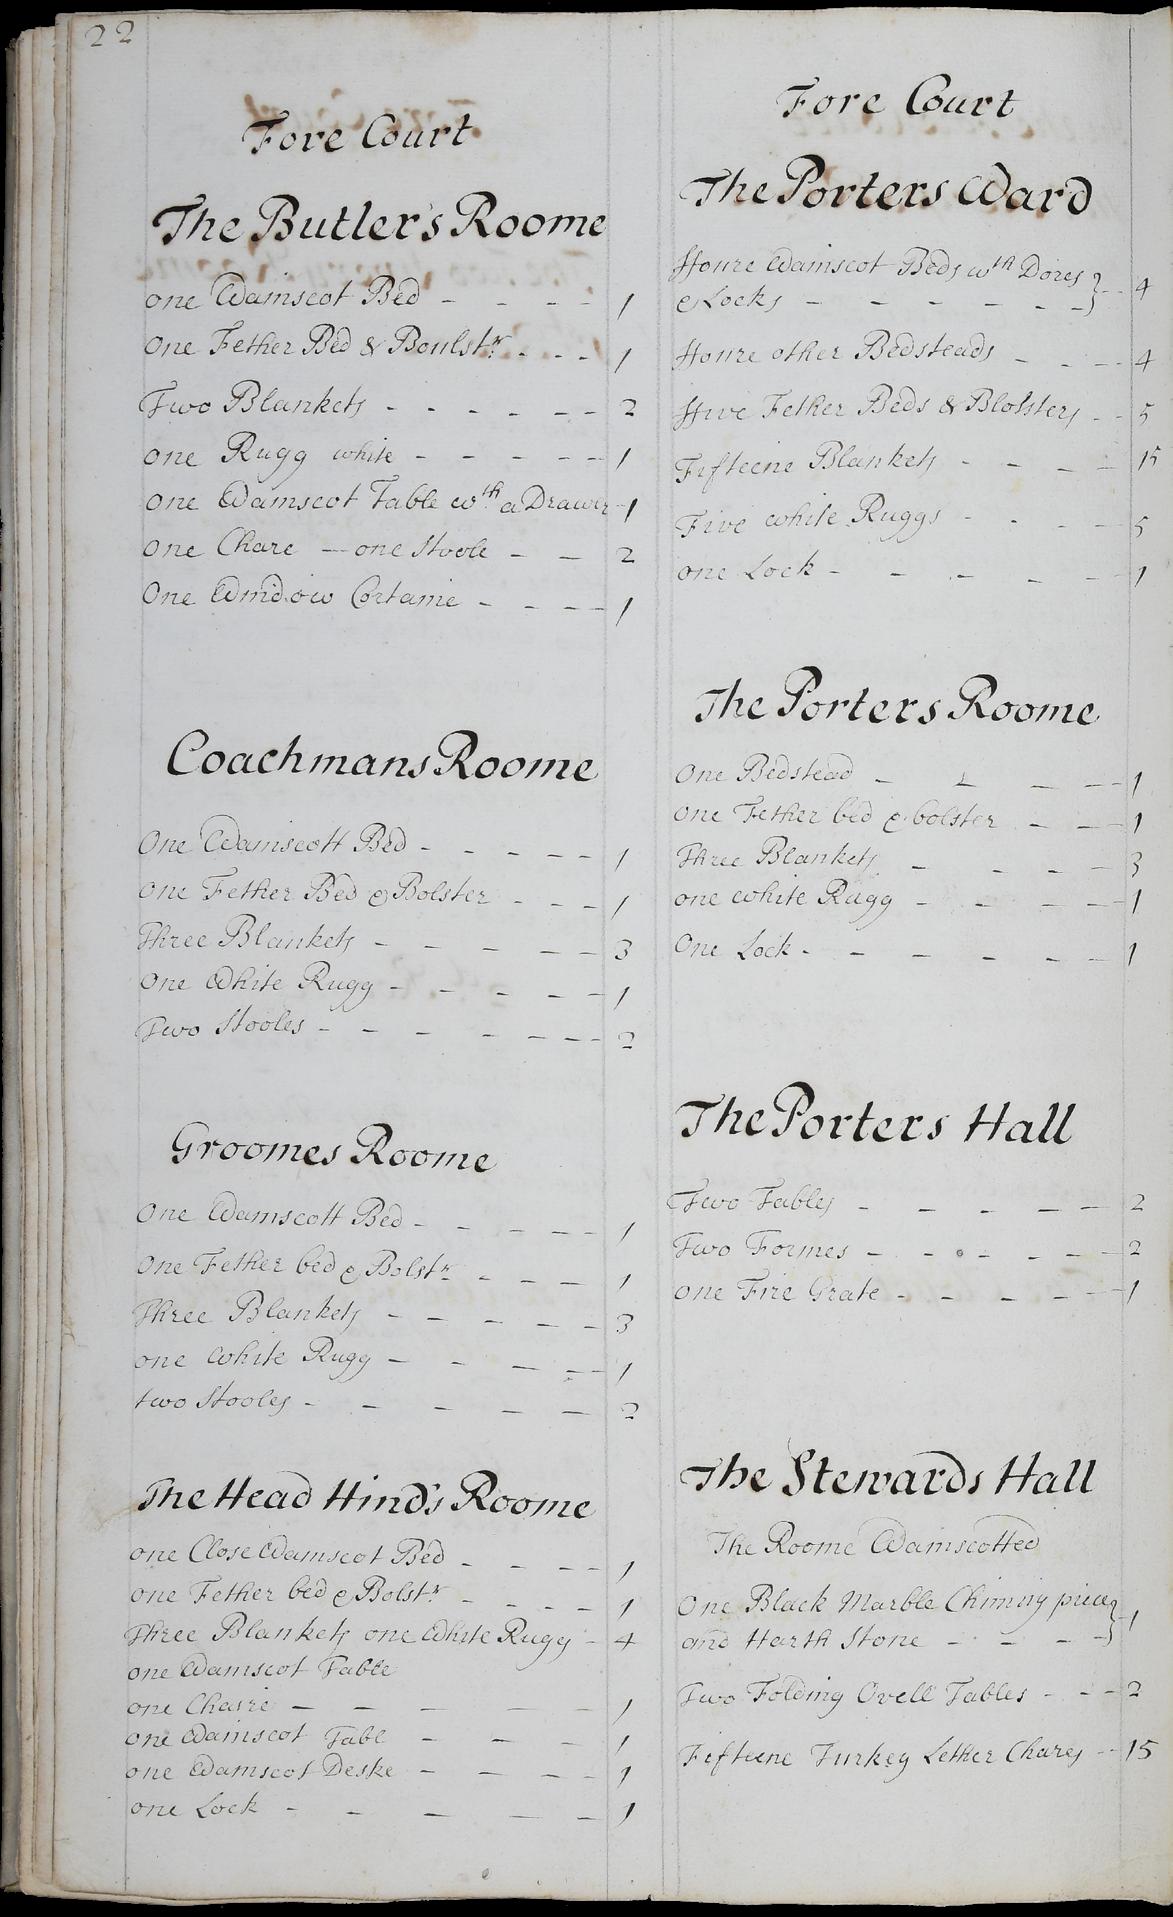 22
Fore Court
The Butler's Roome
one Wainscot Bed - - - - 1
One Fether Bed & Boulstr - - - 1
Two Blankets - - - - - - 2
one Rugg white - - - - - 1
One Wainscot Table wth a Drawer - 1
One Chare — one Stoole - - 2
One Window Cortaine - - - - 1
Coachmans Roome
One Wainscott Bed - - - - - 1
One Fether Bed & Bolster - - - 1
Three Blankets - - - - - - 3
One White Rugg - - - - - 1
Two Stooles - - - - - - - 2
Groomes Roome
One Wainscott Bed - - - - - 1
One Fether bed & Bolstr - - - - 1
Three Blankets - - - - - - 3
one white Rugg - - - - - 1
two Stooles - - - - - 2
The Head Hind's Roome
one Close Wainscot Bed - - - - 1
one Fether bed & Bolstr - - - - 1
Three Blankets one White Rugg - 4
one Wainscot Table
one Chaire - - - - - - 1
one Wainscot Tabl - - - - 1
one Wainscot Deske - - - - - 1
one Lock - - - - - 1
Fore Court
The Porters Ward
ffoure Wainscot Beds wth Dores
& Locks - - - - - - - 4
ffoure other Bedsteads - - - - 4
ffive Fether Beds & Blolsters - - 5
Fifteene Blankets - - - - - 15
Five white Ruggs - - - - 5
one Lock - - - - - - 1
The Porters Roome
One Bedstead - - - - - 1
one Fether bed & bolster - - - 1
Three Blankets - - - - - 3
one white Rugg - - - - - 1
One Lock - - - - - - 1
The Porters Hall
Two Tables - - - - - - 2
Two Formes - - - - - - - 2
one Fire Grate - - - - - - 1
The Stewards Hall
The Roome Wainscotted
One Black Marble Chimny piece
and Harth Stone - - - - 1
Two Folding Ovell Tables - - - 2
Fifteene Turkey Lether Chares - - 15